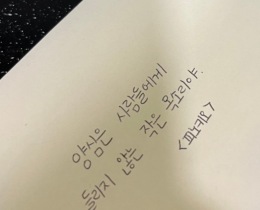 양심은 사람들에게
들리지 않는 작은 목소리야.
<피노키오>